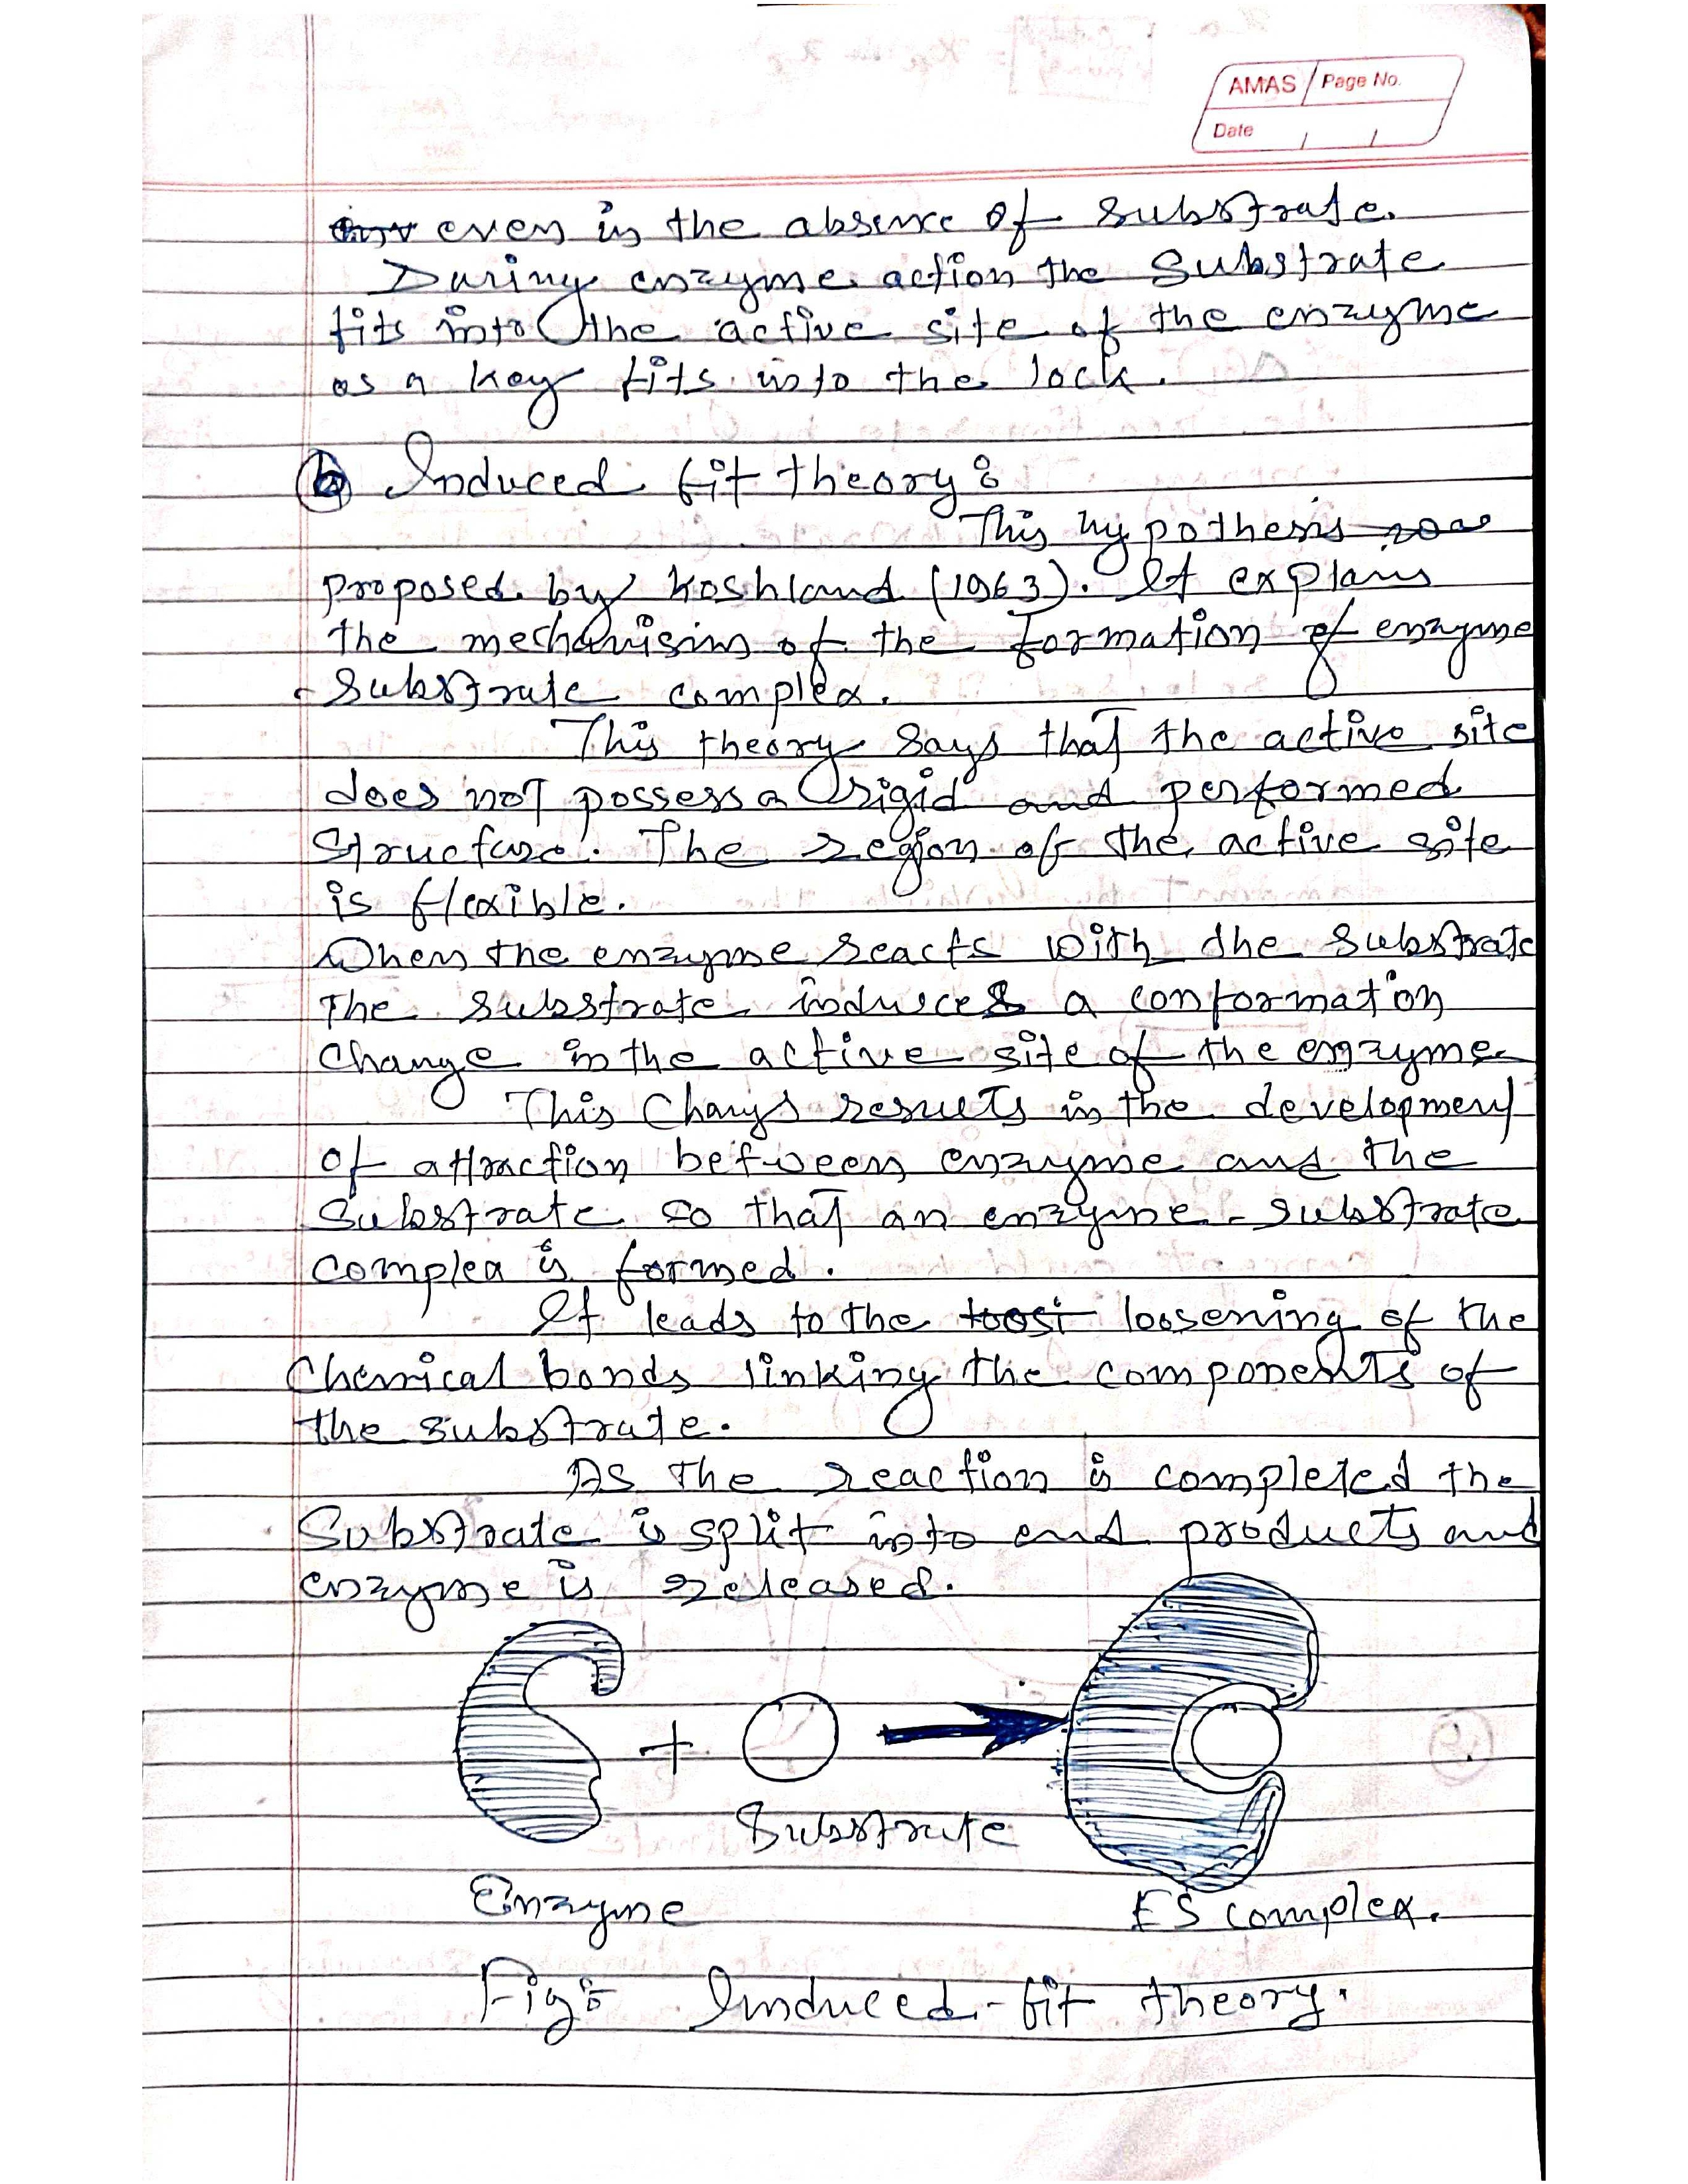 AMAS Page No.
Date
even in the absence of substrate.
During enzyme action the substrate
fits into the active site of the enzyme
as a key fits into the lock.
(b) Induced fit theory:
This hypothesis was
proposed by Koshland (1963). It explans
the mechanism of the formation of enzyme
- Substrate complex.
This theory says that the active site
does not possess a rigid and performed
structure. The region of the active site
is flexible.
When the enzyme reacts with the substrate
The substrate induces a conformation
change in the active site of the enzyme
This Changs results in the development
of attraction between enzyme and the
Substrate so that an enzyme - substrate
complex is formed.
It leads to the loosening of the
Chemical bonds linking the components of
the substrate.
As The reaction is completed the
Substrate is split into end products and
enzyme is released.
+
Substrate
Enzyme
ES complex.
Fig: Induced-fit theory.